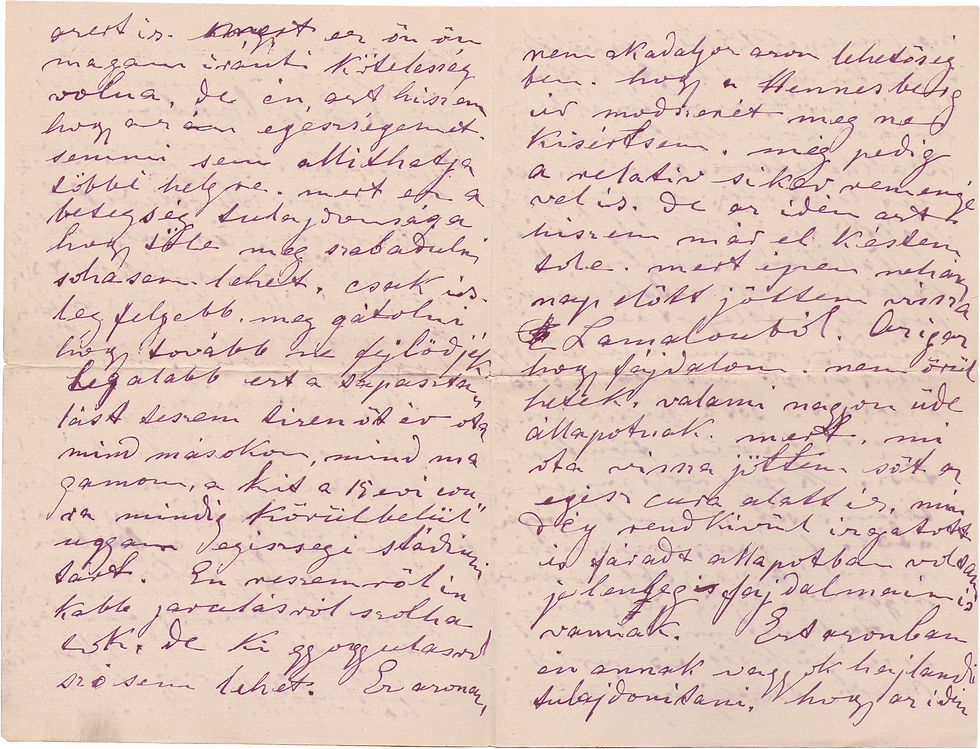 azert is. mert ez ön ön
magam iránti kötelesség
volna, de én, azt hiszem
hogy az én egészségemet
semmi sem allithatja
többé helyre. mert ez a
betegség tulajdonsága
hogy tőle meg szabadulni
sohasem lehet, csak is
legfeljebb meg gátolni
hogy tovább ne fejlődjék
legalabb ezt a tapaszta
lást teszem tizenöt év ota
mind másokon, mind ma
gamon, a kit a 15 evi cu
ra mindig körülbelül
uggan egiszsegi stádium
tart. En reszemről in
kabb javulásrol szolha
tok, de ki gyogyulasrol
szó sem lehet. Ez azonban
nem akadaljoz azon lehetőség
ben. hogy a Hennesberg
uv modszerét meg ne
kisértsem. még pedig
a relativ siker remenye
vel is. De az idén azt
hiszem már el késtem
tőle. mert épen nehány
nap előtt jöttem vissza
Lamalouból. Igaz
hogy fájdalom. nem örül
hetek. valami nagyon üde
allapotnak. mert, mi
óta vissza jöttem sőt az
egész cura alatt is, min
dég rendkivül izgatott
is faradt allapotban vol
jelenleg is fajdalmaim is
vannak. Ezt azonban
én annak vaggok hajlandó
tulajdonitani, hogy az idén